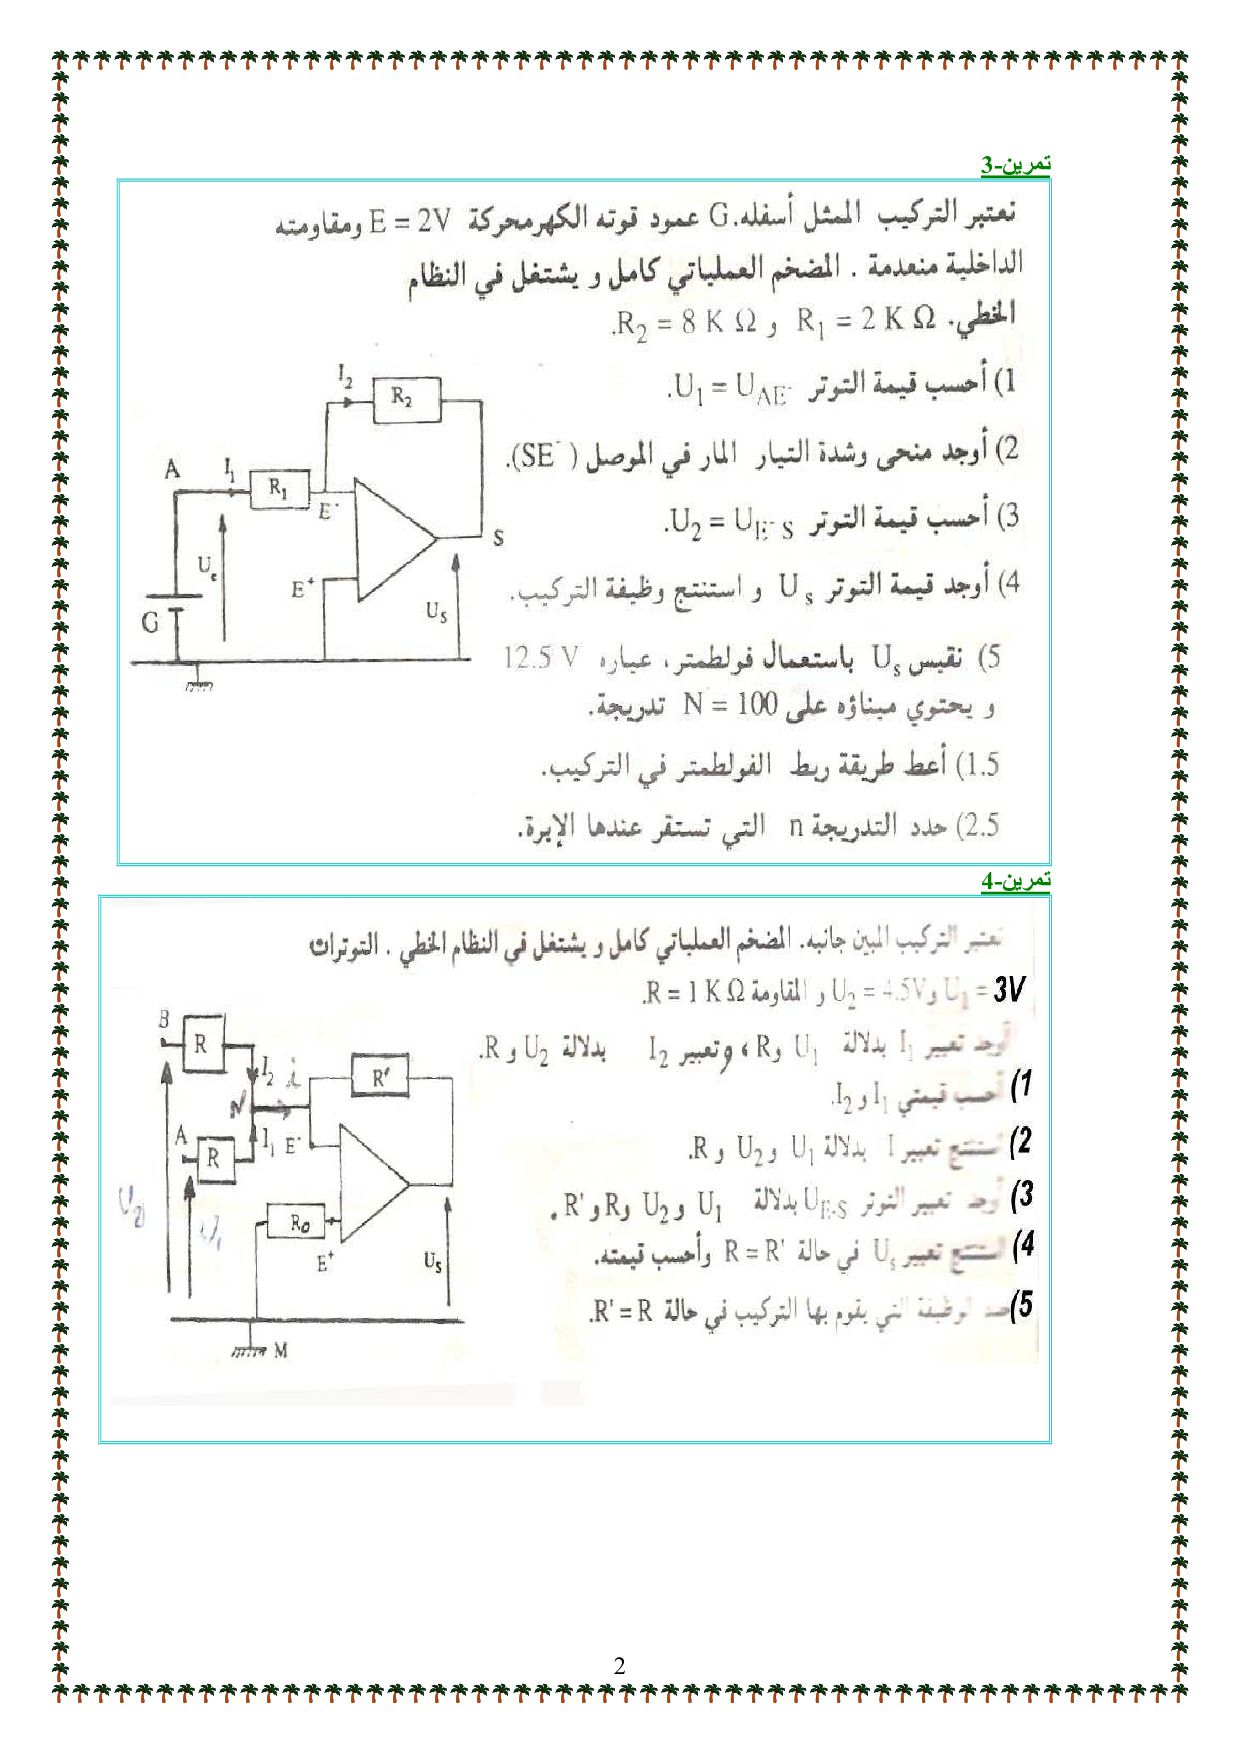 تمرين-3
نعتبر التركيب الممثل أسفله. G عمود قوته الكهرمحركة E = 2V ومقاومته
الداخلية منعدمة . المضخم العملياتي كامل و يشتغل في النظام
الخطي. R₁ = 2 K Ω و R₂ = 8 K Ω.
1) أحسب قيمة التوتر U₁ = U_AE⁻.
2) أوجد منحى وشدة التيار المار في الموصل (SE⁻).
3) أحسب قيمة التوتر U₂ = U_E⁻S.
4) أوجد قيمة التوتر Uₛ و استنتج وظيفة التركيب.
5) نقيس Uₛ باستعمال فولطمتر، عياره 12.5 V
و يحتوي ميناؤه على N = 100 تدريجة.
1.5) أعط طريقة ربط الفولطمتر في التركيب.
2.5) حدد التدريجة n التي تستقر عندها الإبرة.
I₂
R₂
A
I₁
R₁
E⁻
S
Uₑ
E⁺
G
Uₛ
تمرين-4
نعتبر التركيب المبين جانبه. المضخم العملياتي كامل و يشتغل في النظام الخطي . التوترات
U₁ = 3V و U₂ = 4.5V و المقاومة R = 1 K Ω.
أوجد تعبير I₁ بدلالة U₁ و R ، وتعبير I₂ بدلالة U₂ و R.
1) أحسب قيمتي I₁ و I₂.
2) استنتج تعبير I بدلالة U₁ و U₂ و R.
3) أوجد تعبير التوتر U_E-S بدلالة U₁ و U₂ و R و R'.
4) استنتج تعبير Uₛ في حالة R = R' وأحسب قيمته.
5) حدد الوظيفة التي يقوم بها التركيب في حالة R' = R.
B
R
I₂
i
R'
N
A
R
I₁
E⁻
U₂
U₁
R₀
E⁺
Uₛ
M
2